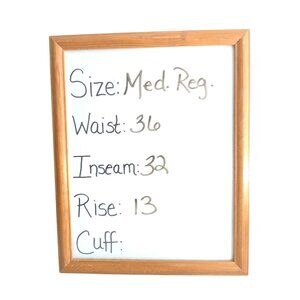 Size: Med. Reg.
Waist: 36
Inseam: 32
Rise: 13
Cuff: